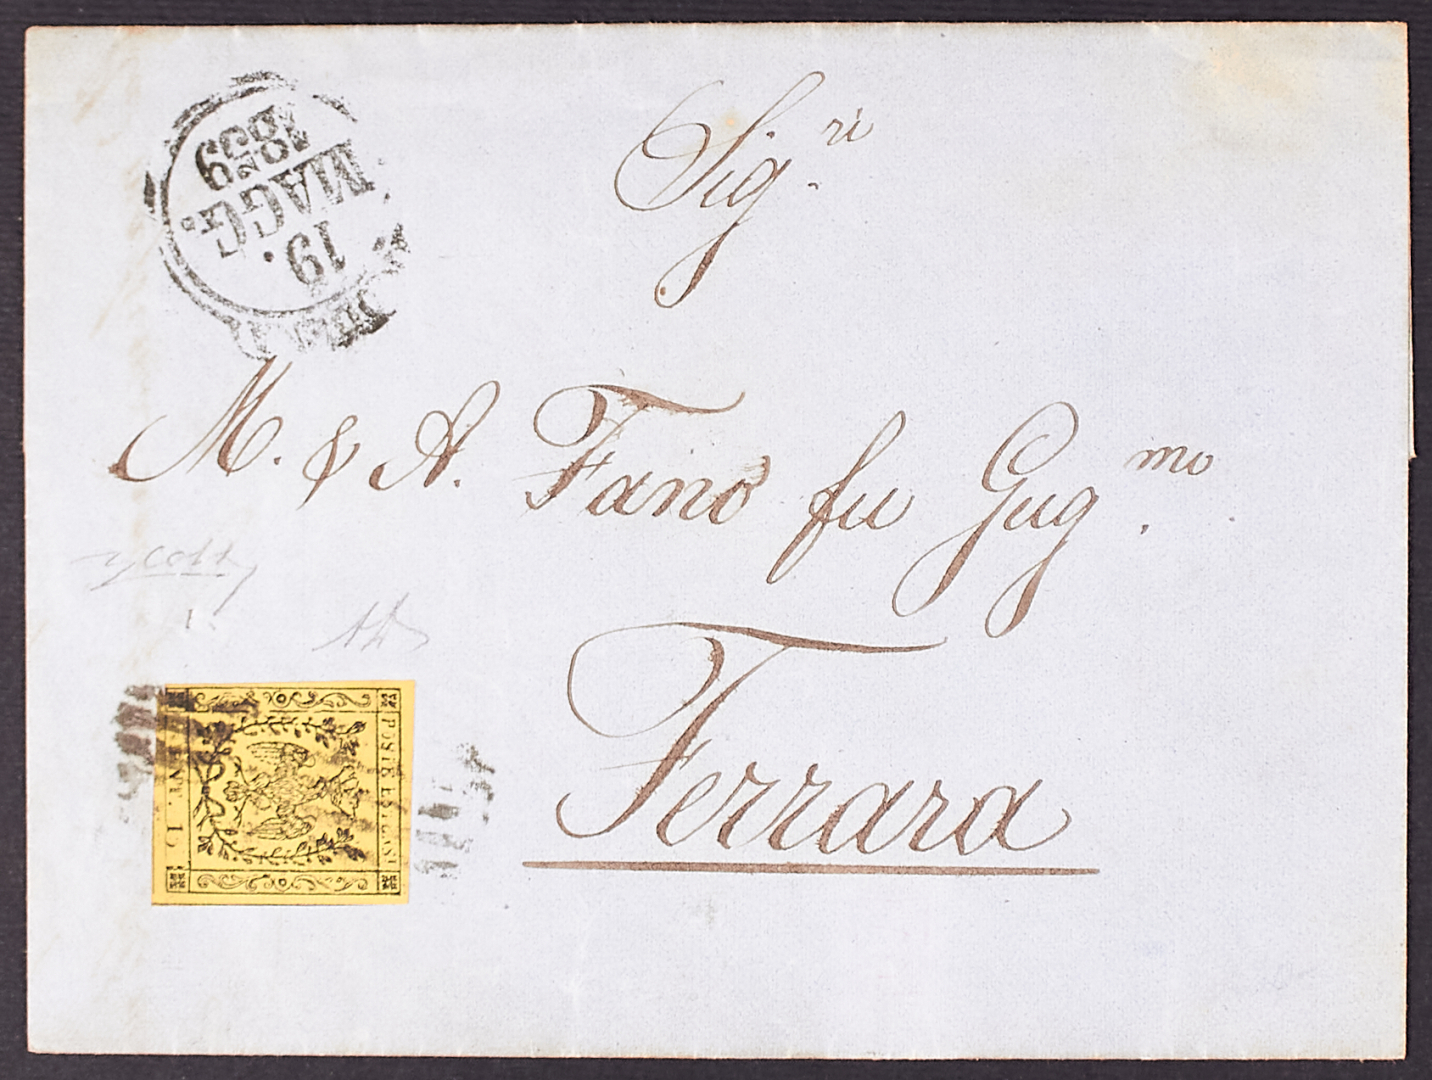 Sig.ri
M. & A. Fano fu Gug.mo
Ferrara
19.
MAGG.
1859
POSTE ESTENSI
CENT. 15